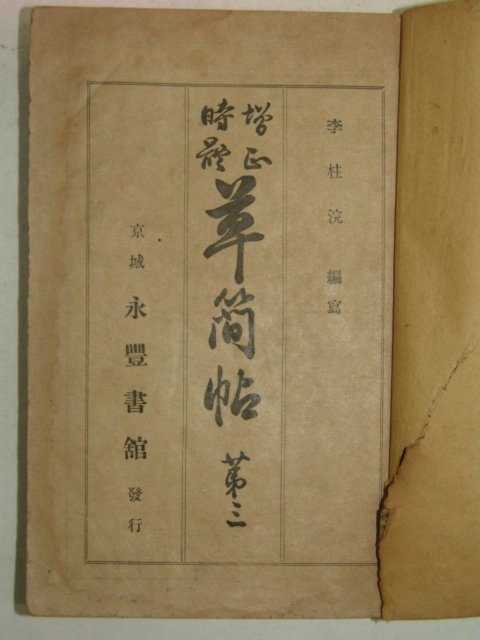 李柱浣 編寫
增正
時體
草簡帖 第三
京城 永豐書舘 發行